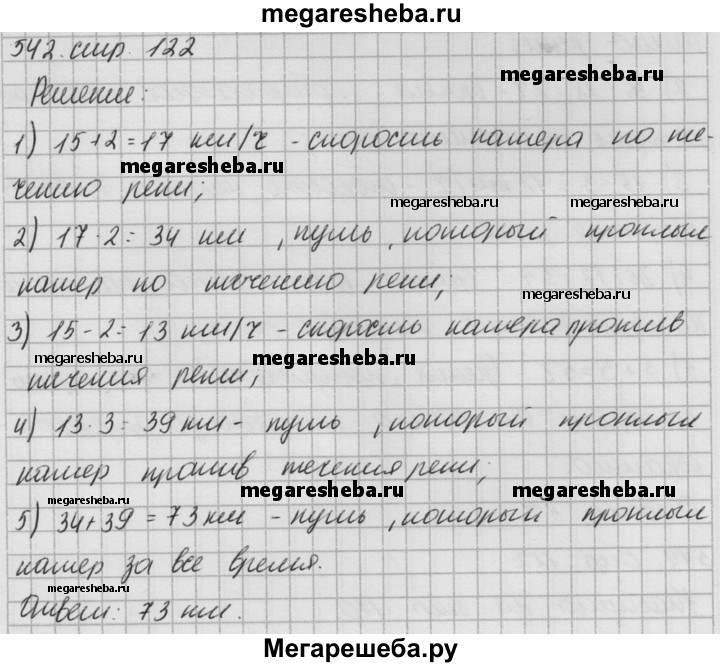 megaresheba.ru
542. стр. 122
Решение:
megaresheba.ru
1) 15+2=17 км/ч - скорость катера по те-
megaresheba.ru
чению реки;
megaresheba.ru
megaresheba.ru
2) 17·2= 34 км , путь , который проплыл
катер по течению реки;
megaresheba.ru
3) 15-2= 13 км/ч - скорость катера против
megaresheba.ru
megaresheba.ru
течения реки;
4) 13·3= 39 км - путь , который проплыл
катер против течения реки;
megaresheba.ru
megaresheba.ru
megaresheba.ru
5) 34+39 = 73 км - путь , который проплыл
катер за все время.
megaresheba.ru
Ответ: 73 км.
Мегарешеба.ру